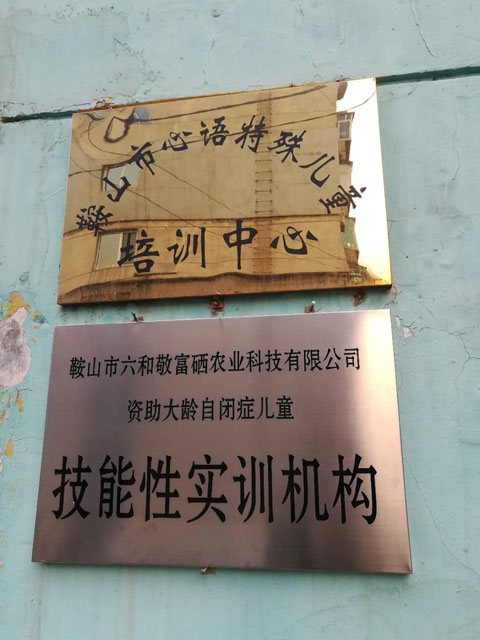 鞍山市心语特殊儿童
培训中心
鞍山市六和敬富硒农业科技有限公司
资助大龄自闭症儿童
技能性实训机构